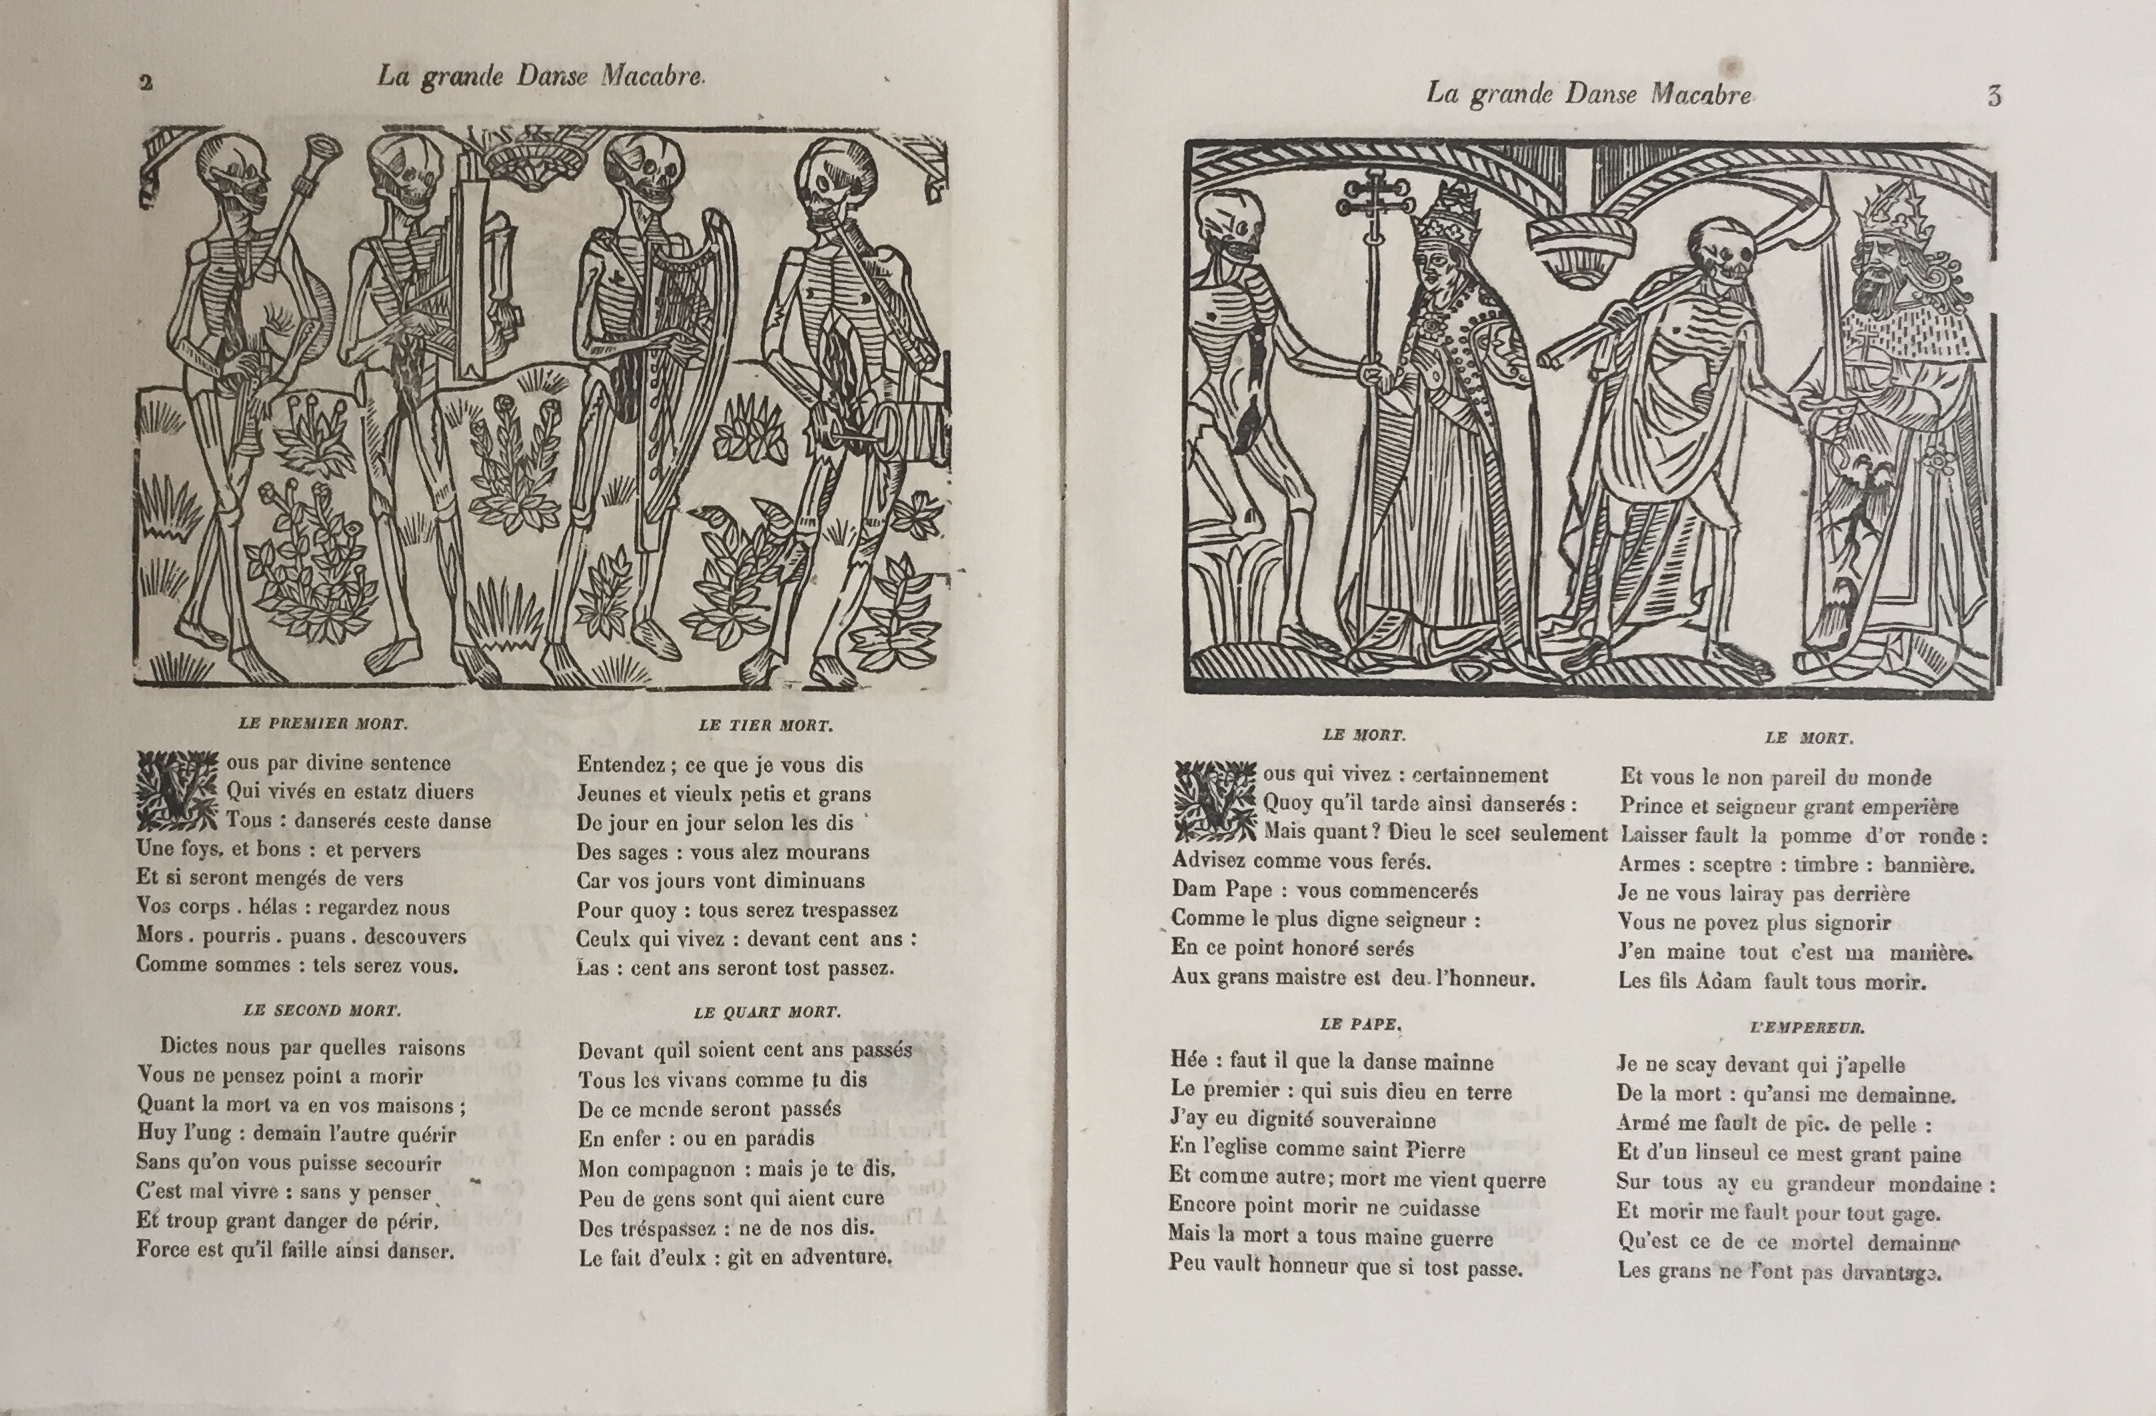 2
La grande Danse Macabre.
LE PREMIER MORT.
Vous par divine sentence
Qui vivés en estatz diuers
Tous : danserés ceste danse
Une foys. et bons : et pervers
Et si seront mengés de vers
Vos corps . hélas : regardez nous
Mors . pourris . puans . descouvers
Comme sommes : tels serez vous.
LE SECOND MORT.
Dictes nous par quelles raisons
Vous ne pensez point a morir
Quant la mort va en vos maisons ;
Huy l'ung : demain l'autre quérir
Sans qu'on vous puisse secourir
C'est mal vivre : sans y penser
Et troup grant danger de périr.
Force est qu'il faille ainsi danser.
LE TIER MORT.
Entendez ; ce que je vous dis
Jeunes et vieulx petis et grans
De jour en jour selon les dis
Des sages : vous alez mourans
Car vos jours vont diminuans
Pour quoy : tous serez trespassez
Ceulx qui vivez : devant cent ans :
Las : cent ans seront tost passez.
LE QUART MORT.
Devant quil soient cent ans passés
Tous les vivans comme tu dis
De ce monde seront passés
En enfer : ou en paradis
Mon compagnon : mais je te dis.
Peu de gens sont qui aient cure
Des tréspassez : ne de nos dis.
Le fait d'eulx : git en adventure.
La grande Danse Macabre
3
LE MORT.
Vous qui vivez : certainnement
Quoy qu'il tarde ainsi danserés :
Mais quant ? Dieu le scet seulement
Advisez comme vous ferés.
Dam Pape : vous commencerés
Comme le plus digne seigneur :
En ce point honoré serés
Aux grans maistre est deu. l'honneur.
LE PAPE.
Hée : faut il que la danse mainne
Le premier : qui suis dieu en terre
J'ay eu dignité souverainne
En l'eglise comme saint Pierre
Et comme autre; mort me vient querre
Encore point morir ne cuidasse
Mais la mort a tous maine guerre
Peu vault honneur que si tost passe.
LE MORT.
Et vous le non pareil du monde
Prince et seigneur grant emperière
Laisser fault la pomme d'or ronde :
Armes : sceptre : timbre : bannière.
Je ne vous lairay pas derrière
Vous ne povez plus signorir
J'en maine tout c'est ma manière.
Les fils Adam fault tous morir.
L'EMPEREUR.
Je ne scay devant qui j'apelle
De la mort : qu'ansi me demainne.
Armé me fault de pic. de pelle :
Et d'un linseul ce mest grant paine
Sur tous ay eu grandeur mondaine :
Et morir me fault pour tout gage.
Qu'est ce de ce mortel demainne
Les grans ne l'ont pas davantage.